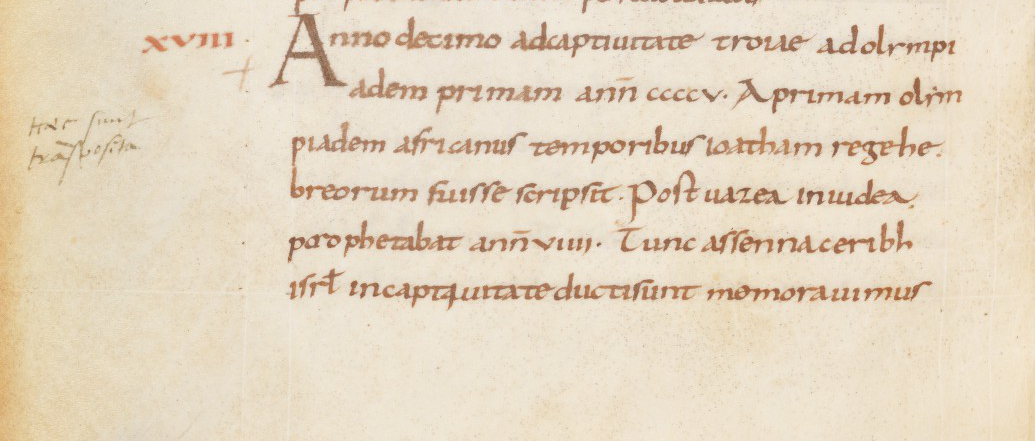 xviii
Anno decimo adcaptiuitate troiae adolympi
adem primam ann̄ ccccv. Aprimam olym
piadem africanus temporibus ioatham regehe.
breorum fuisse scripsit. Post uazea iniudea.
porophetabat ann̄ viiii. Tunc assennaceribh
isrł incaptiuitate ductisunt memorauimus
Hæc sunt
trāsposita